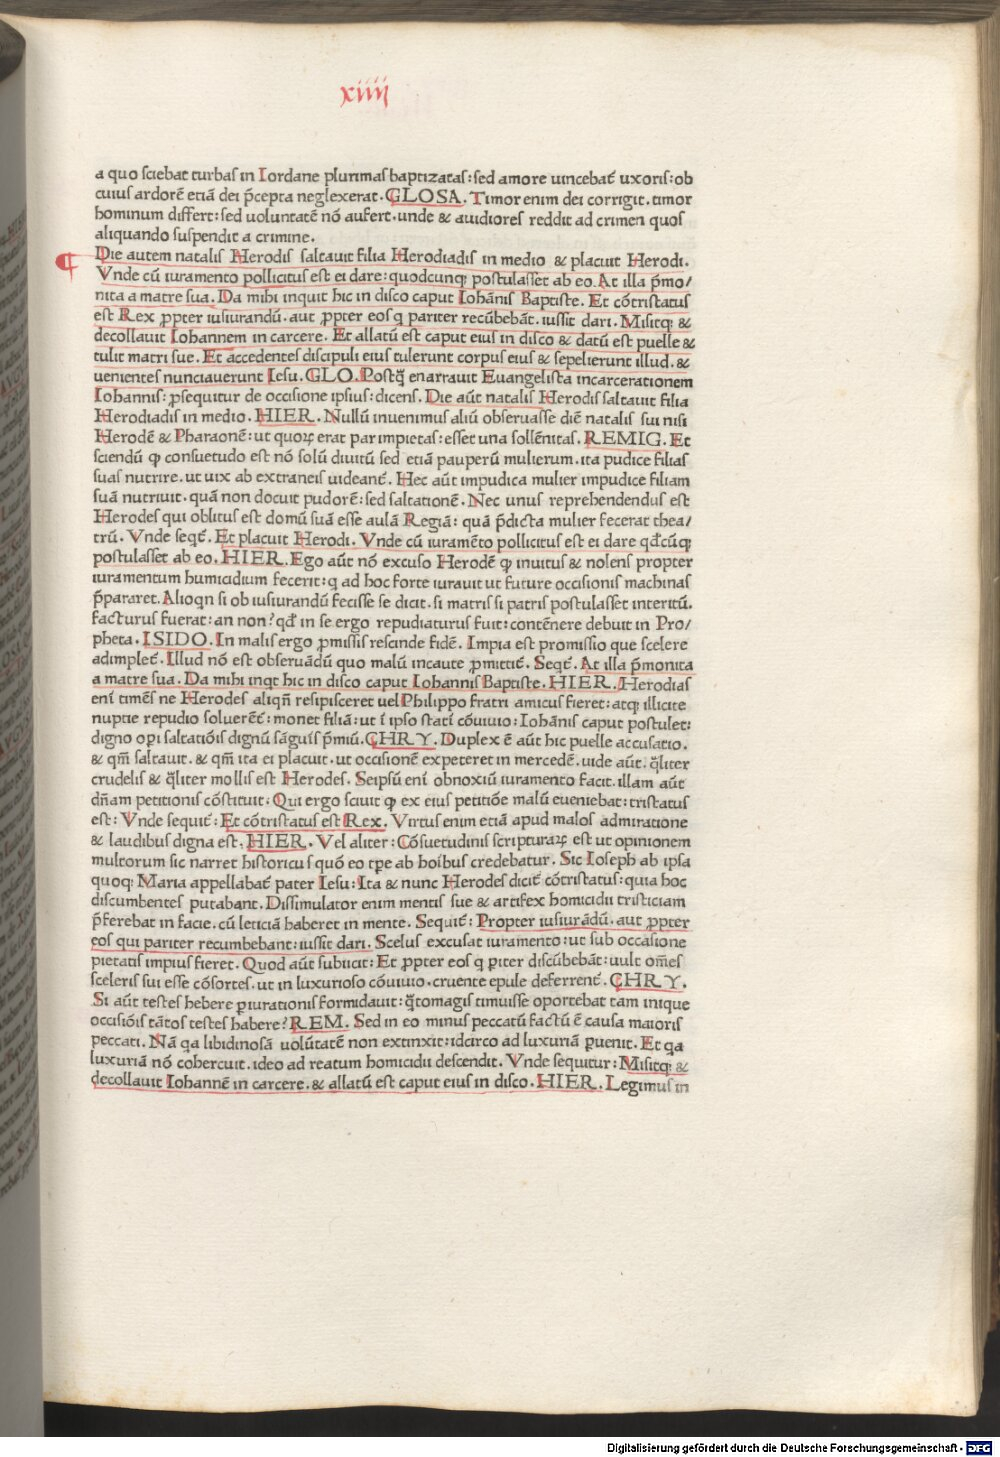 xiiij
a quo sciebat turbas in Iordane plurimas baptizatas: sed amore uincebat̄ uxoris: ob
cuius ardorē etiā dei p̄cepta neglexerat. GLOSA. Timor enim dei corrigit. timor
hominum differt: sed uoluntatē nō aufert. unde & auidiores reddit ad crimen quos
aliquando suspendit a crimine.
Die autem natalis Herodis saltauit filia Herodiadis in medio & placuit Herodi.
Vnde cū iuramento pollicitus est ei dare: quodcunq; postulasset ab eo. At illa p̄mo/
nita a matre sua. Da mihi inquit hic in disco caput Iohānis Baptiste. Et cōtristatus
est Rex ꝓpter iusiurandū. aut ꝓpter eos q pariter recūbebāt. iussit dari. Misitq; &
decollauit Iohannem in carcere. Et allatū est caput eius in disco & datū est puelle &
tulit matri sue. Et accedentes discipuli eius tulerunt corpus eius & sepelierunt illud. &
uenientes nunciauerunt Iesu. GLO. Postq̄ enarrauit Euangelista incarcerationem
Iohannis: ꝓsequitur de occisione ipsius: dicens. Die aūt natalis Herodis saltauit filia
Herodiadis in medio. HIER. Nullū inuenimus aliū obseruasse diē natalis sui nisi
Herodē & Pharaonē: ut quoꝝ erat par impietas: esset una sollēnitas. REMIG. Et
sciendū ꝙ consuetudo est nō solū diuitū sed etiā pauperū mulierum. ita pudice filias
suas nutrire. ut uix ab extraneis uideant̄. Hec aūt impudica mulier impudice filiam
suā nutriuit. quā non docuit pudorē: sed saltationē. Nec unus reprehendendus est
Herodes qui oblitus est domū suā esse aulā Regiā: quā p̄dicta mulier fecerat thea/
trū. Vnde seqt̄. Et placuit Herodi. Vnde cū iuramēto pollicitus est ei dare qd̄cūq;
postulasset ab eo. HIER. Ego aūt nō excuso Herodē ꝙ inuitus & nolens propter
iuramentum humicidium fecerit: q ad hoc forte iurauit ut future occisionis machinas
p̄pararet. Alioqn si ob iusiurandū fecisse se dicit. si matris si patris postulasset interitū.
facturus fuerat: an non? qd̄ in se ergo repudiaturus fuit: contēnere debuit in Pro/
pheta. ISIDO. In malis ergo ꝓmissis rescinde fidē. Impia est promissio que scelere
adimplet̄. Illud nō est obseruādū quo malū incaute ꝓmittit̄. Seqt̄. At illa p̄monita
a matre sua. Da mihi inqt hic in disco caput Iohannis Baptiste. HIER. Herodias
eni timēs ne Herodes aliqn̄ resipisceret uel Philippo fratri amicus fieret: atq; illicite
nuptie repudio soluerēt̄: monet filiā: ut ī ipso statī cōuiuio: Iohānis caput postulet:
digno oꝑi saltatiōis dignū sāguīs p̄miū. CHRY. Duplex ē aūt hic puelle accusatio.
& qm̄ saltauit. & qm̄ ita ei placuit. ut occisionē expeteret in mercedē. uide aūt. q̄liter
crudelis & q̄liter mollis est Herodes. Seipsū eni obnoxiū iuramento facit. illam aūt
dn̄am petitionis cōstituit: Qui ergo sciuit ꝙ ex eius petitiōe malū eueniebat: tristatus
est: Vnde sequit̄: Et cōtristatus est Rex. Virtus enim etiā apud malos admiratione
& laudibus digna est. HIER. Vel aliter: Cōsuetudinis scripturaꝝ est ut opinionem
multorum sic narret historicus quō eo tꝑe ab hoībus credebatur. Sic Ioseph ab ipsa
quoq; Maria appellabat̄ pater Iesu: Ita & nunc Herodes dicit̄ cōtristatus: quia hoc
discumbentes putabant. Dissimulator enim mentis sue & artifex homicidii tristiciam
p̄ferebat in facie. cū leticiā haberet in mente. Sequit̄: Propter iusiurādū. aut ꝓpter
eos qui pariter recumbebant: iussit dari. Scelus excusat iuramento: ut sub occasione
pietatis impius fieret. Quod aūt subiicit: Et ꝓpter eos q ꝑiter discūbebāt: uult om̄es
sceleris sui esse cōsortes. ut in luxurioso cōuiuio. cruente epule deferrent̄. CHRY.
Si aūt testes hebere ꝑiurationis formidauit: q̄tomagis timuisse oportebat tam inique
occisiōis tātos testes habere? REM. Sed in eo minus peccatū factū ē causa maioris
peccati. Nā qa libidinosā uolūtatē non extinxit: idcirco ad luxuriā ꝑuenit. Et qa
luxuriā nō cohercuit. ideo ad reatum homicidii descendit. Vnde sequitur: Misitq; &
decollauit Iohannē in carcere. & allatū est caput eius in disco. HIER. Legimus in
Digitalisierung gefördert durch die Deutsche Forschungsgemeinschaft - DFG